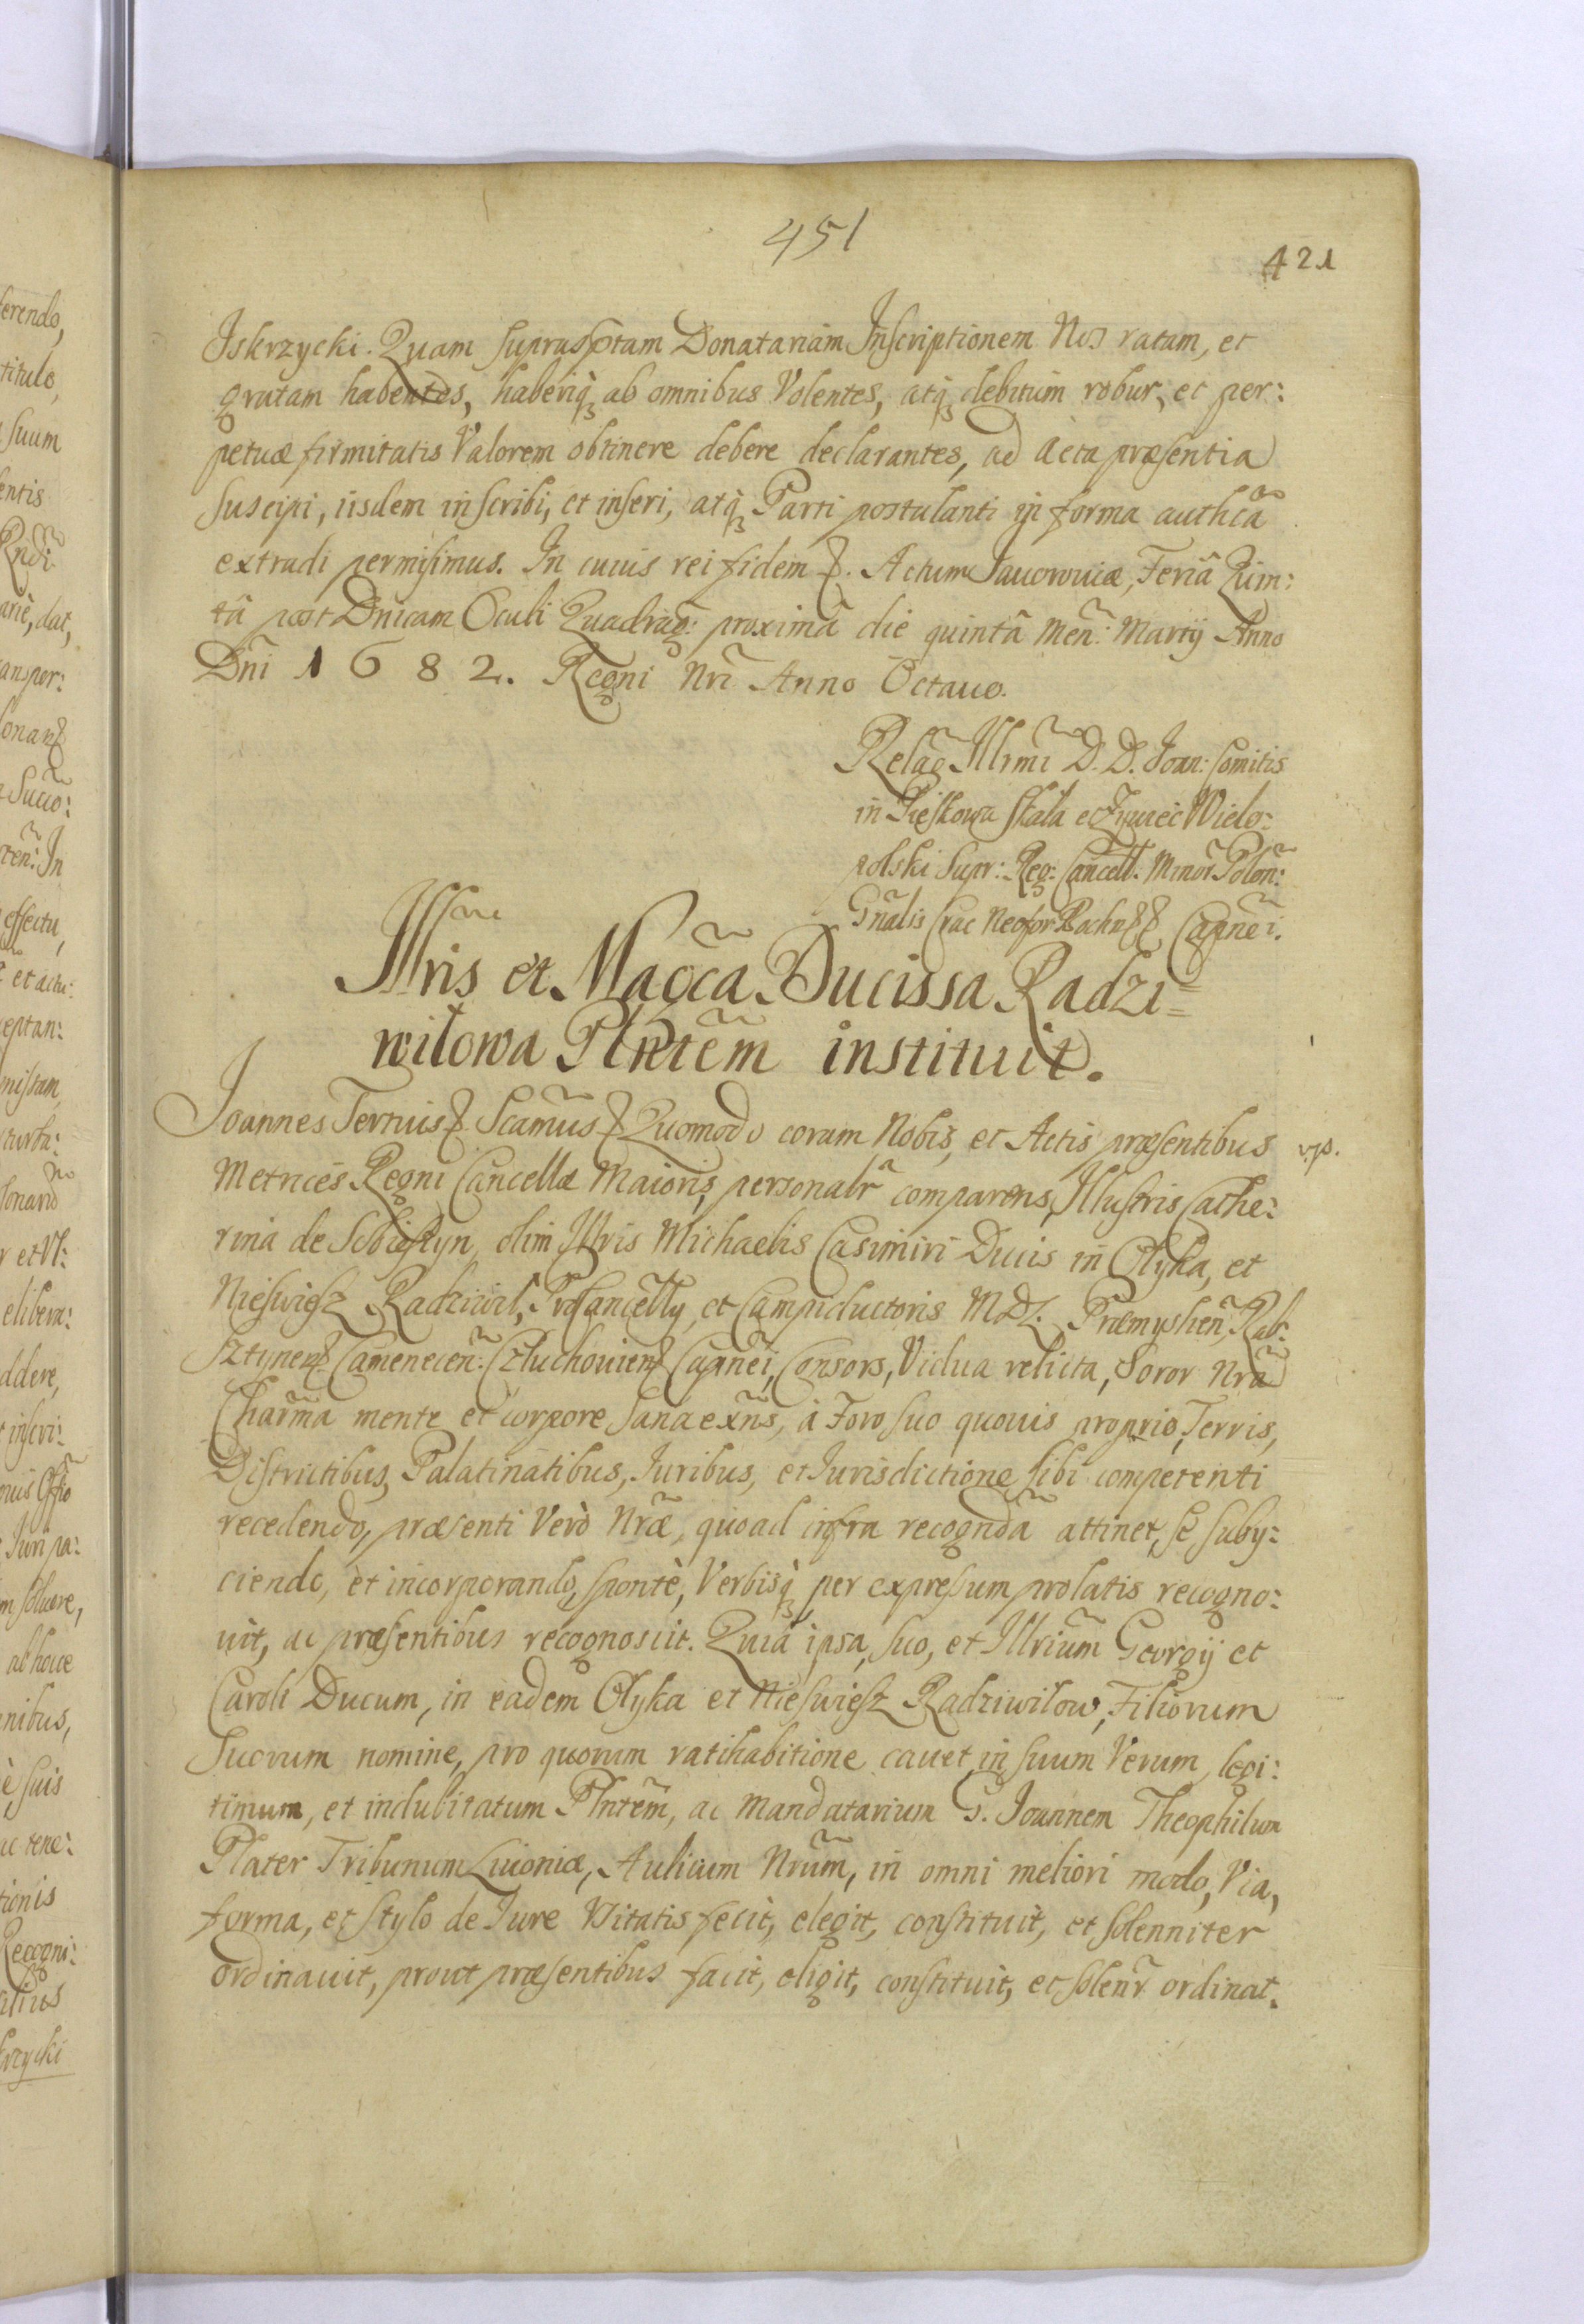 451
421
Iskrzycki. Quam suprasptam Donatariam Inscriptionem Nos ratam, et
gratam habentes, haberiq ab omnibus Volentes, atq debitum robur, et per:
petuæ firmitatis Valorem obtinere debere declarantes, ad Acta præsentia
suscipi, iisdem inscribi, et inseri, atq Parti postulanti in forma authcâ
extradi permisimus. In cuius rei fidem &. Actum Jauorouiæ, Feriâ Quin:
tâ post Dnicam Oculi Quadrag: proximâ die quintâ Men: Martij Anno
Dni 1682. Regni Nri Anno Octauo.
Relão Illrmi D. D. Joan: Comitis
in Pieskowa Skała et Zywiec Wielo:
polski Supr: Reg: Cancell. Minor Polon:
Gnalis Crac Neofor Bochn && Capnei.
Illris et Magca Ducissa Radzi=
wiłowa Plntem instituit.
Joannes Tertius & Scamus & Quomodo coram Nobis, et Actis præsentibus
v. p.
Metrices Regni Cancellæ Maioris, personalr comparens, Illustris Cathe:
rina de Sobieszyn, olim Illris Michaelis Casimiri Ducis in Ołyka, et
Nieswiesz Radziwił, Procancelly, et Campiductoris MDL. Præmyslien, Rab:
sztynen Camenecen: Człuchouien Capnei, Consors, Vidua relicta, Soror Nra
Charma mente et corpore sana exns, à Foro suo quouis proprio, Terris,
Districtibus, Palatinatibus, Iuribus, et Iurisdictione sibi competenti
recedendo, præsenti Verò Nræ, quoad infra recognda attinet, se suby:
ciendo, et incorporando, spontè, Verbisq per expressum prolatis recogno:
uit, ac præsentibus recognoscit. Quia ipsa, suo, et Illrium Georgij et
Caroli Ducum, in eadem Ołyka et Nieswiesz Radziwiłow, Filiorum
Suorum nomine, pro quorum ratihabitione cauet, in suum Verum, legi:
timum, et indubitatum Plntem, ac Mandatarium G. Joannem Theophilum
Plater Tribunum Liuoniæ, Aulicum Nrum, in omni meliori modo, Via,
forma, et stylo de Iure Vsitatis fecit, elegit, constituit, et solenniter
ordinauit, prout præsentibus facit, eligit, constituit, et solenr ordinat.